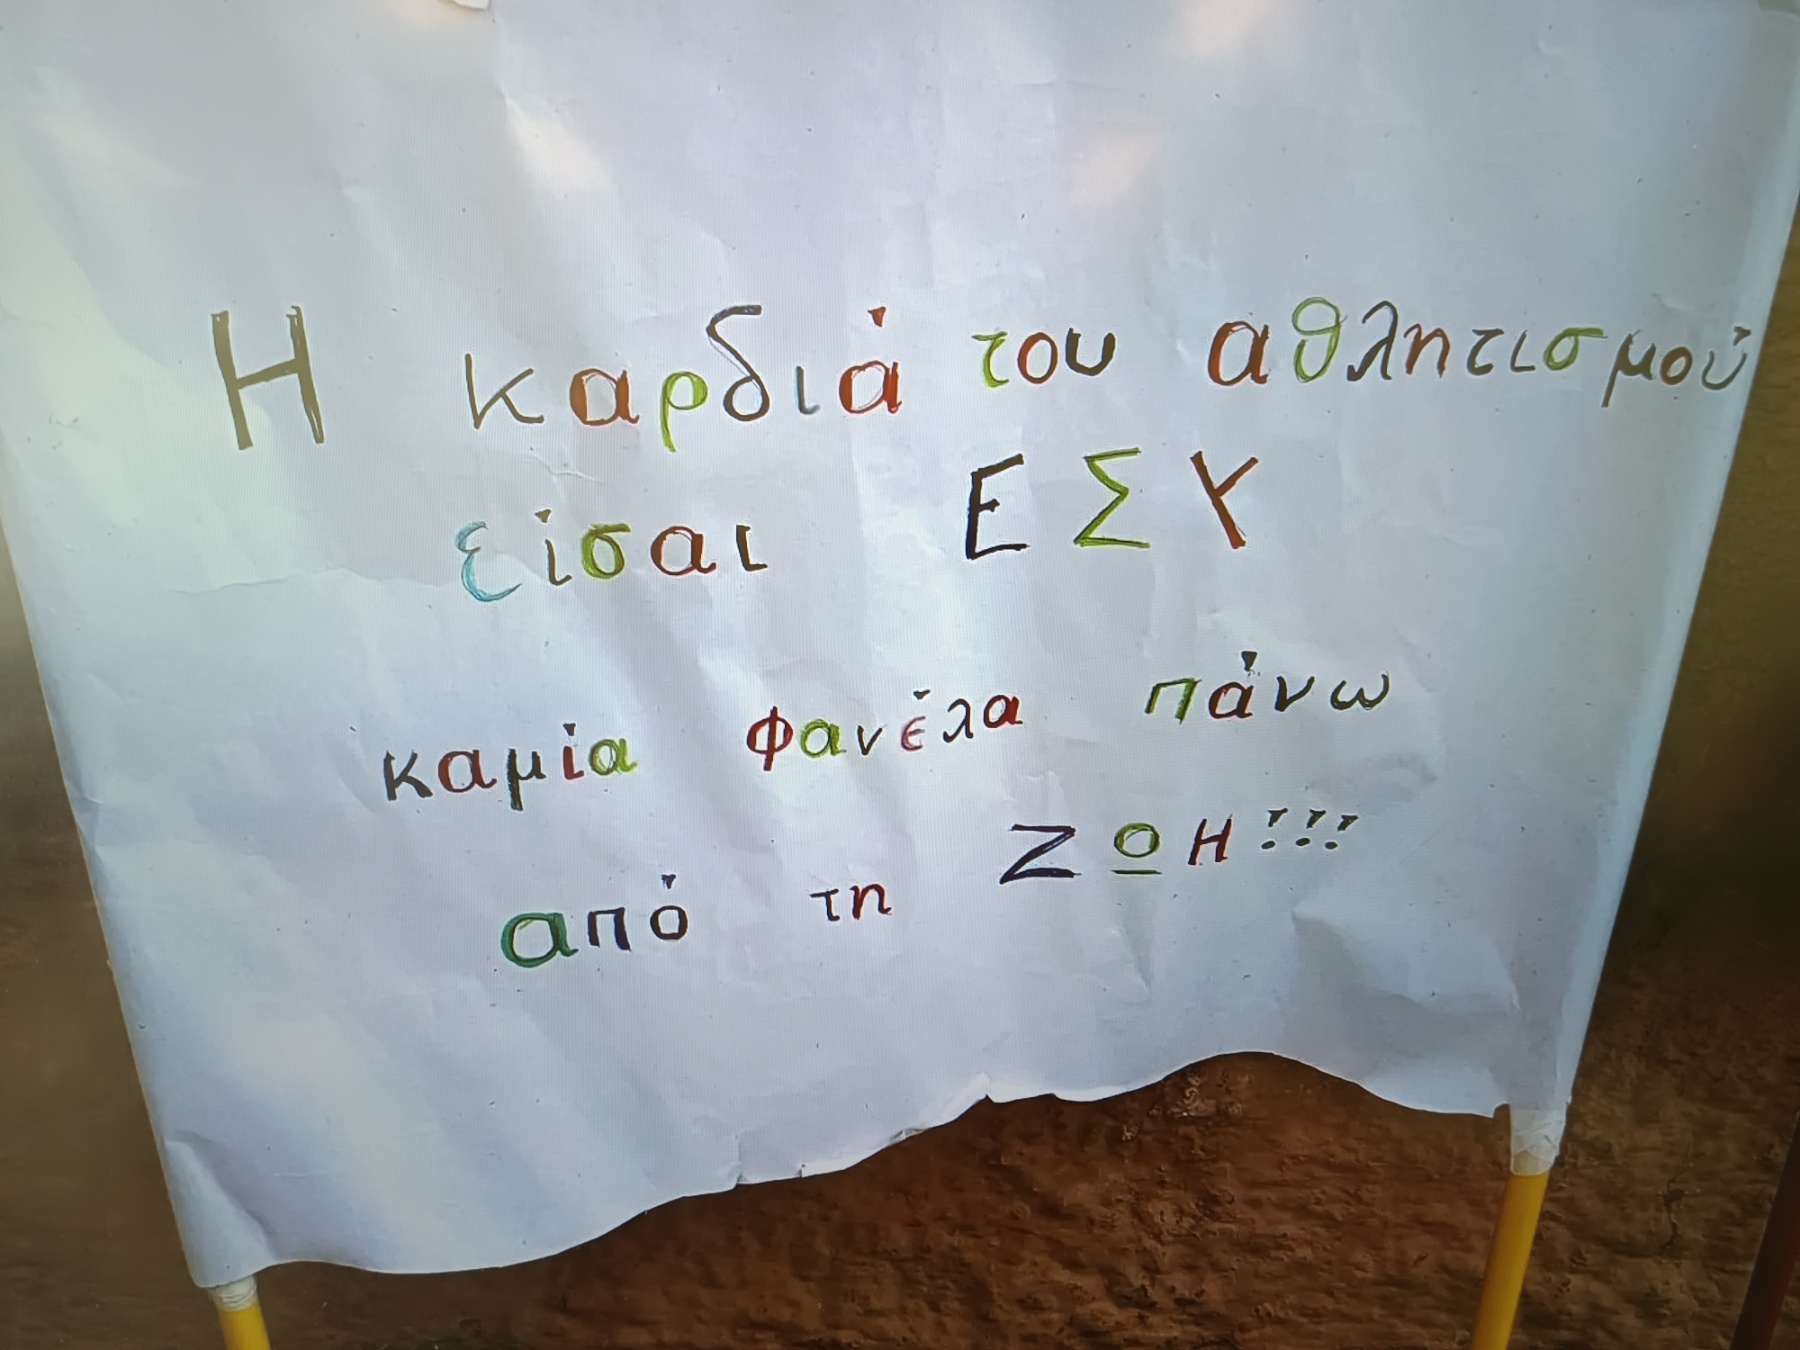 Η καρδιά του αθλητισμού
είσαι ΕΣΥ
καμία φανέλα πάνω
από τη ΖΩΗ!!!